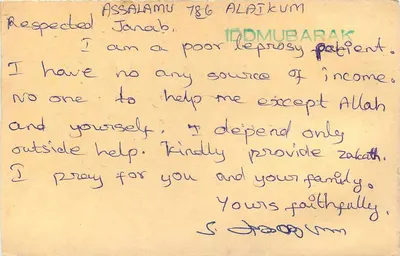 ASSALAMU 786 ALAIKUM
Respected Janab.
IDDMUBARAK
I am a poor leprosy patient.
I have no any source of income.
No one to help me except Allah
and yourself. I depend only
outside help. Kindly provide zakath.
I pray for you and your family.
Yours faithfully,
S.